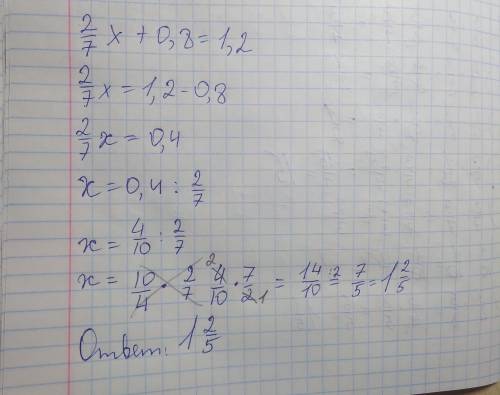 2/7 x + 0,8 = 1,2
2/7 x = 1,2 - 0,8
2/7 x = 0,4
x = 0,4 : 2/7
x = 4/10 : 2/7
x = 10/4 · 2/7 4/10 2 · 7/2 1 = 14/10 :2 = 7/5 = 1 2/5
Ответ: 1 2/5